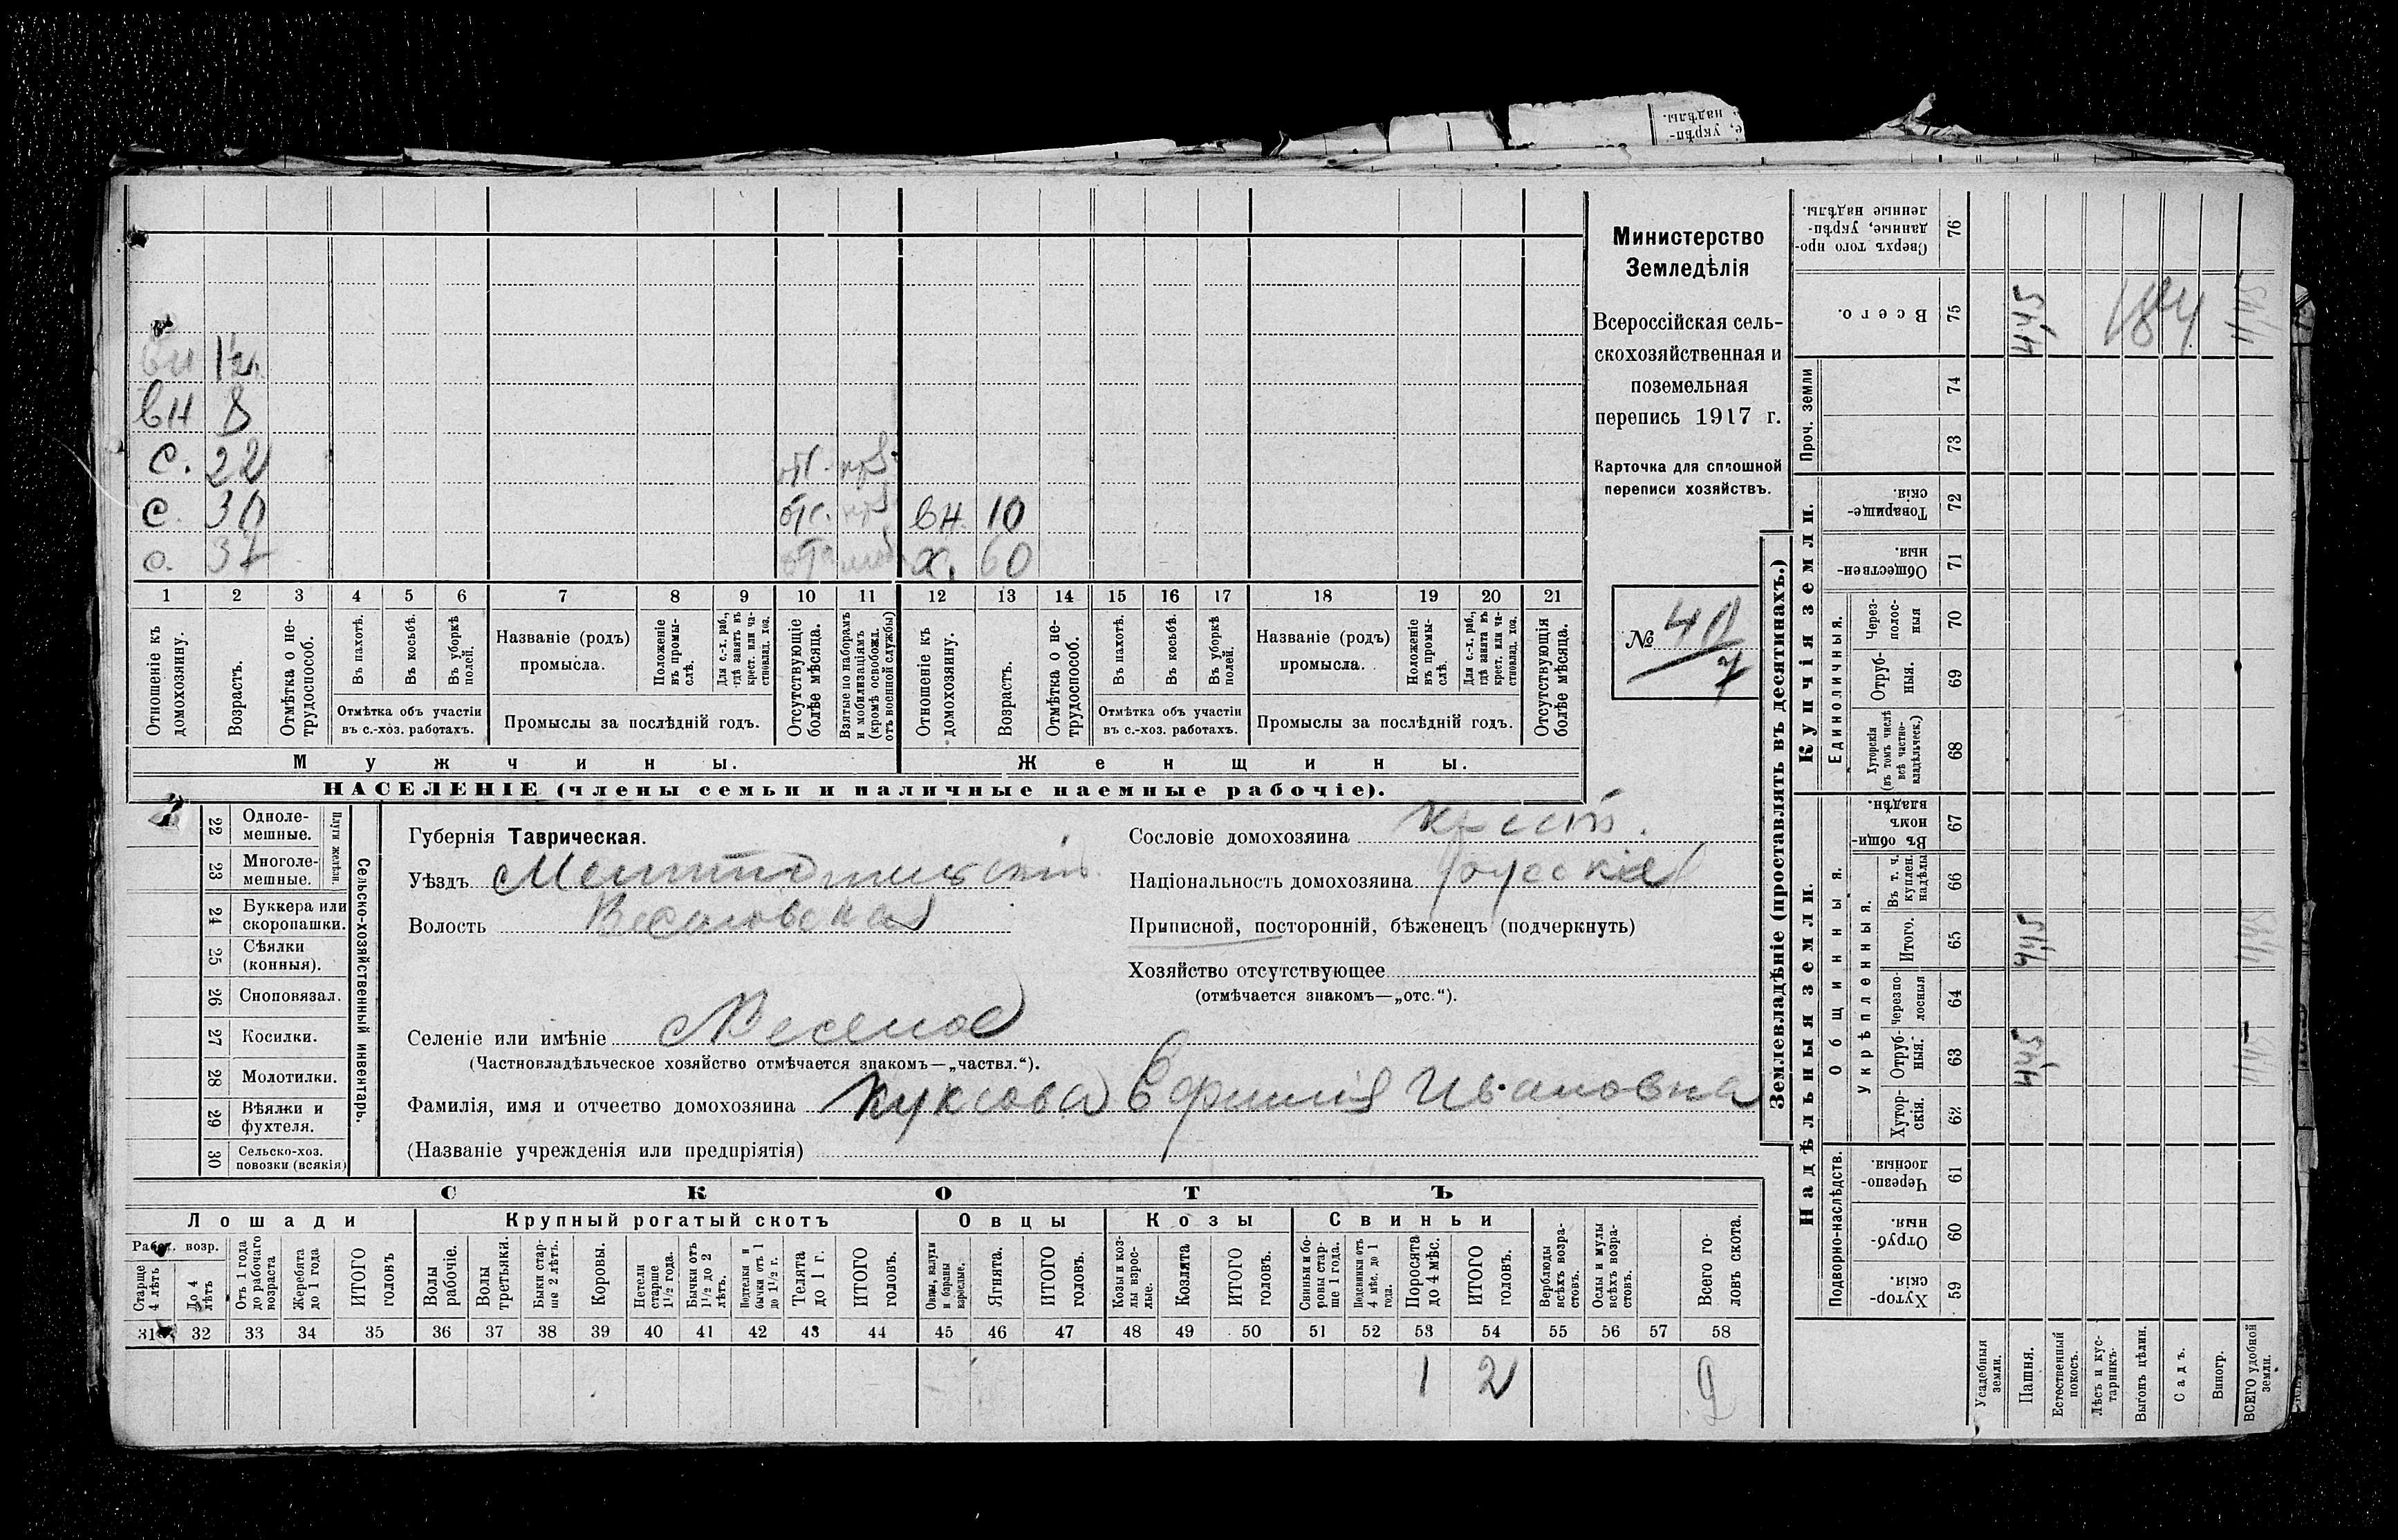 укрѣп-
надѣлы.
вн 1½
вн 8
с. 22 отс.
с. 30 отс. вн. 10
с. 37 х. 60
1 2 3 4 5 6 7 8 9 10 11 12 13 14 15 16 17 18 19 20 21
Отношеніе къ домохозяину.
Возрастъ.
Отмѣтка о не-трудоспособ.
Въ пахотѣ.
Въ косьбѣ.
Въ уборкѣ полей.
Отмѣтка объ участіи въ с.-хоз. работахъ.
Названіе (родъ) промысла.
Положеніе въ промы-слѣ.
Для с.-х. раб., гдѣ занятъ въ крест. или ча-стновлад. хоз.
Промыслы за послѣдній годъ.
Отсутствующіе болѣе мѣсяца.
Взятые по наборамъ и мобилизаціямъ (кромѣ освобожд. отъ военной службы)
Отношеніе къ домохозяину.
Возрастъ.
Отмѣтка о не-трудоспособ.
Въ пахотѣ.
Въ косьбѣ.
Въ уборкѣ полей.
Отмѣтка объ участіи въ с.-хоз. работахъ.
Названіе (родъ) промысла.
Положеніе въ промы-слѣ.
Для с.-х. раб., гдѣ занята въ крест. или ча-стновлад. хоз.
Промыслы за послѣдній годъ.
Отсутствующія болѣе мѣсяца.
Мужчины. Женщины.
НАСЕЛЕНІЕ (члены семьи и наличные наемные рабочіе).
Министерство
Земледѣлія
Всероссійская сель-
скохозяйственная и
поземельная
перепись 1917 г.
Карточка для сплошной
переписи хозяйствъ.
№
7
22 Одноле-мешные.
23 Многоле-мешные.
Плуги желѣзн.
24 Буккера или скоропашки.
25 Сѣялки (конныя).
26 Сноповязал.
27 Косилки.
28 Молотилки.
29 Вѣялки и фухтеля.
30 Сельско-хоз. повозки (всякія)
Сельско-хозяйственный инвентарь.
Губернія Таврическая.
Уѣздъ Мелитопольскій
Волость Веселовская
Селеніе или имѣніе Веселое
(Частновладѣльческое хозяйство отмѣчается знакомъ—„частвл.“).
Фамилія, имя и отчество домохозяина Куксова Ефимія Ивановна
(Названіе учрежденія или предпріятія)
Сословіе домохозяина крест.
Національность домохозяина русская
Приписной, посторонній, бѣженецъ (подчеркнуть)
Хозяйство отсутствующее
(отмѣчается знакомъ—„отс.“).
СКОТЪ
Лошади Крупный рогатый скотъ Овцы Козы Свиньи
Рабоч. возр.
Старше 4 лѣтъ
До 4 лѣтъ
Отъ 1 года до рабочаго возраста
Жеребята до 1 года
ИТОГО головъ
Волы рабочіе.
Волы третьяки.
Быки стар-ше 2 лѣтъ.
Коровы.
Нетели старше 1½ года.
Бычки отъ 1½ до 2 лѣтъ.
Подтелки и бычки отъ 1 до 1½ г.
Телята до 1 г.
ИТОГО головъ.
Овцы, валухи и бараны взрослые.
Ягнята.
ИТОГО головъ.
Козы и коз-лы взрос-лые.
Козлята
ИТОГО головъ.
Свиньи и бо-ровы стар-ше 1 года.
Подсвинки отъ 4 мѣс. до 1 года.
Поросята до 4 мѣс.
ИТОГО головъ.
Верблюды всѣхъ возра-стовъ.
Ослы и мулы всѣхъ возра-стовъ.
Всего го-ловъ скота.
31 32 33 34 35 36 37 38 39 40 41 42 43 44 45 46 47 48 49 50 51 52 53 54 55 56 57 58
1 2 2
Землевладѣніе (проставлять въ десятинахъ.)
Надѣльныя земли. Купчія земли. Проч. земли
Подворно-наслѣдств. Общинныя. Единоличныя.
Укрѣпленныя.
76 Сверхъ того про-данные, укрѣп-ленные надѣлы.
75 Всего. 4,45 184 4,45
74
73
72 Товарище-скія.
71 Обществен-ныя.
70 Через-полос-ныя
69 Отруб-ныя.
68 Хуторскія (въ томъ числѣ всѣ частно-владѣльческ.)
67 Въ общи-номъ владѣн.
66 Въ т. ч. куплен. надѣлы
65 Итого. 4,45 4,45
64 Черезпо-лосныя
63 Отруб-ныя. 4,45 4,45
62 Хутор-скія.
61 Черезпо-лосныя.
60 Отруб-ныя.
59 Хутор-скія.
Усадебныя земли.
Пашня.
Естественный покосъ.
Лѣсъ и кус-тарникъ.
Выгонъ цѣлин.
Садъ.
Виногр.
ВСЕГО удобной земли.